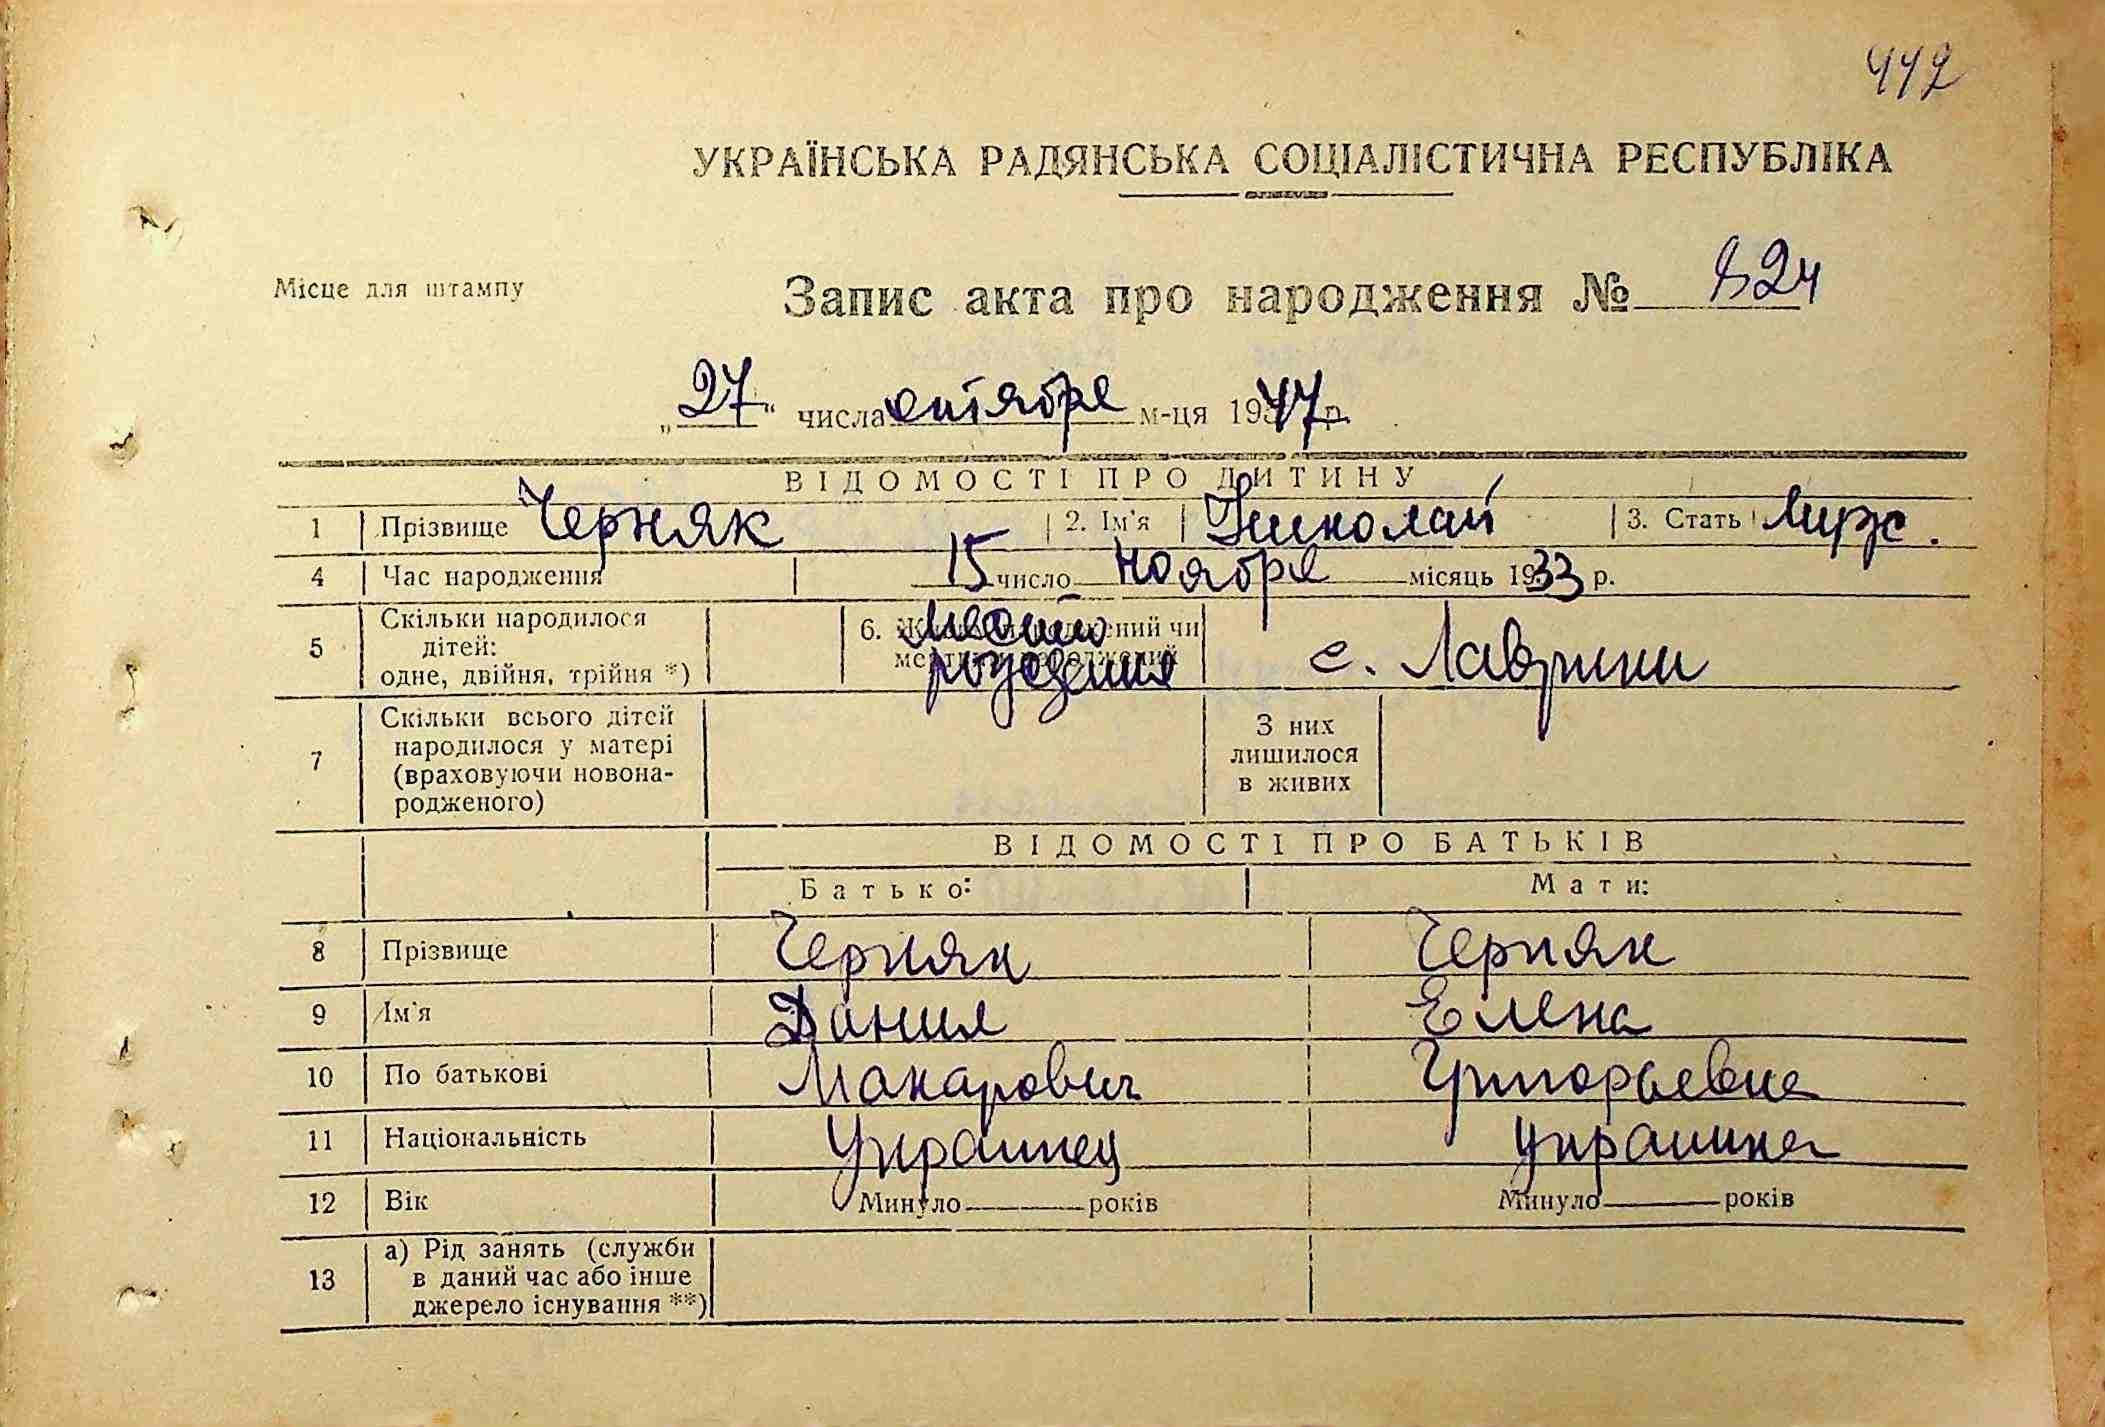 442
УКРАЇНСЬКА РАДЯНСЬКА СОЦІАЛІСТИЧНА РЕСПУБЛІКА
Місце для штампу
Запис акта про народження № 824
„27" числа октября м-ця 1947 р.
ВІДОМОСТІ ПРО ДИТИНУ
1 Прізвище Черняк 2. Ім'я Николай 3. Стать Муж.
4 Час народження 15 число ноября місяць 1933 р.
5 Скільки народилося дітей: одне, двійня, трійня *) 6. Место рождения с. Лаврики
7 Скільки всього дітей народилося у матері (враховуючи новонародженого) З них лишилося в живих
ВІДОМОСТІ ПРО БАТЬКІВ
Батько: Мати:
8 Прізвище Черняк Черняк
9 Ім'я Данил Елена
10 По батькові Макарович Григорьевна
11 Національність Украинец украинка
12 Вік Минуло років Минуло років
13 а) Рід занять (служби в даний час або інше джерело існування **)